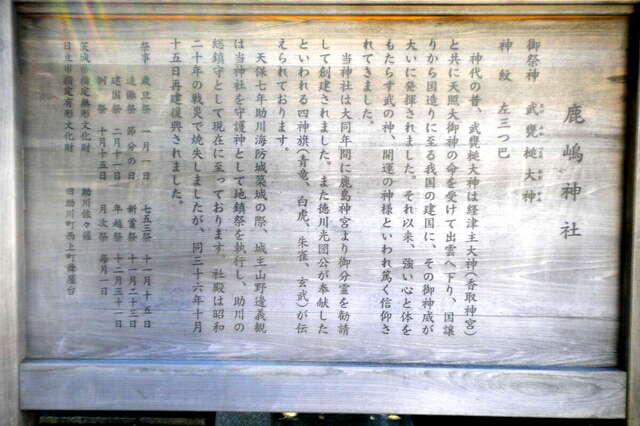 鹿嶋神社
御祭神　武甕槌大神
神　紋　左三つ巴
神代の昔、武甕槌大神は経津主大神（香取神宮）
と共に天照大御神の命を受けて出雲へ下り、国譲
りから国造りに至る我国の建国に、その御神威が
大いに発揮されました。それ以来、強い心と体を
もたらす武の神、開運の神様といわれ篤く信仰さ
れてきました。
当神社は大同年間に鹿島神宮より御分霊を勧請
して創建されました。また徳川光圀公が奉献した
といわれる四神旗（青竜、白虎、朱雀、玄武）が伝
えられております。
天保七年助川海防城築城の際、城主山野邊義観
は当神社を守護神として地鎮祭を執行し、助川の
総鎮守として現在に至っております。社殿は昭和
二十年の戦災で焼失しましたが、同三十六年十月
十五日再建復興されました。
祭事　歳旦祭　一月一日　七五三祭　十一月十五日
追儺祭　節分の日　新嘗祭　十一月二十三日
建国祭　二月十一日　年越祭　十二月三十一日
例　祭　十月十五日　月次祭　毎月一日
茨城県指定無形文化財　助川佐々羅
日立市指定有形文化財　旧助川町寺上町舞屋台